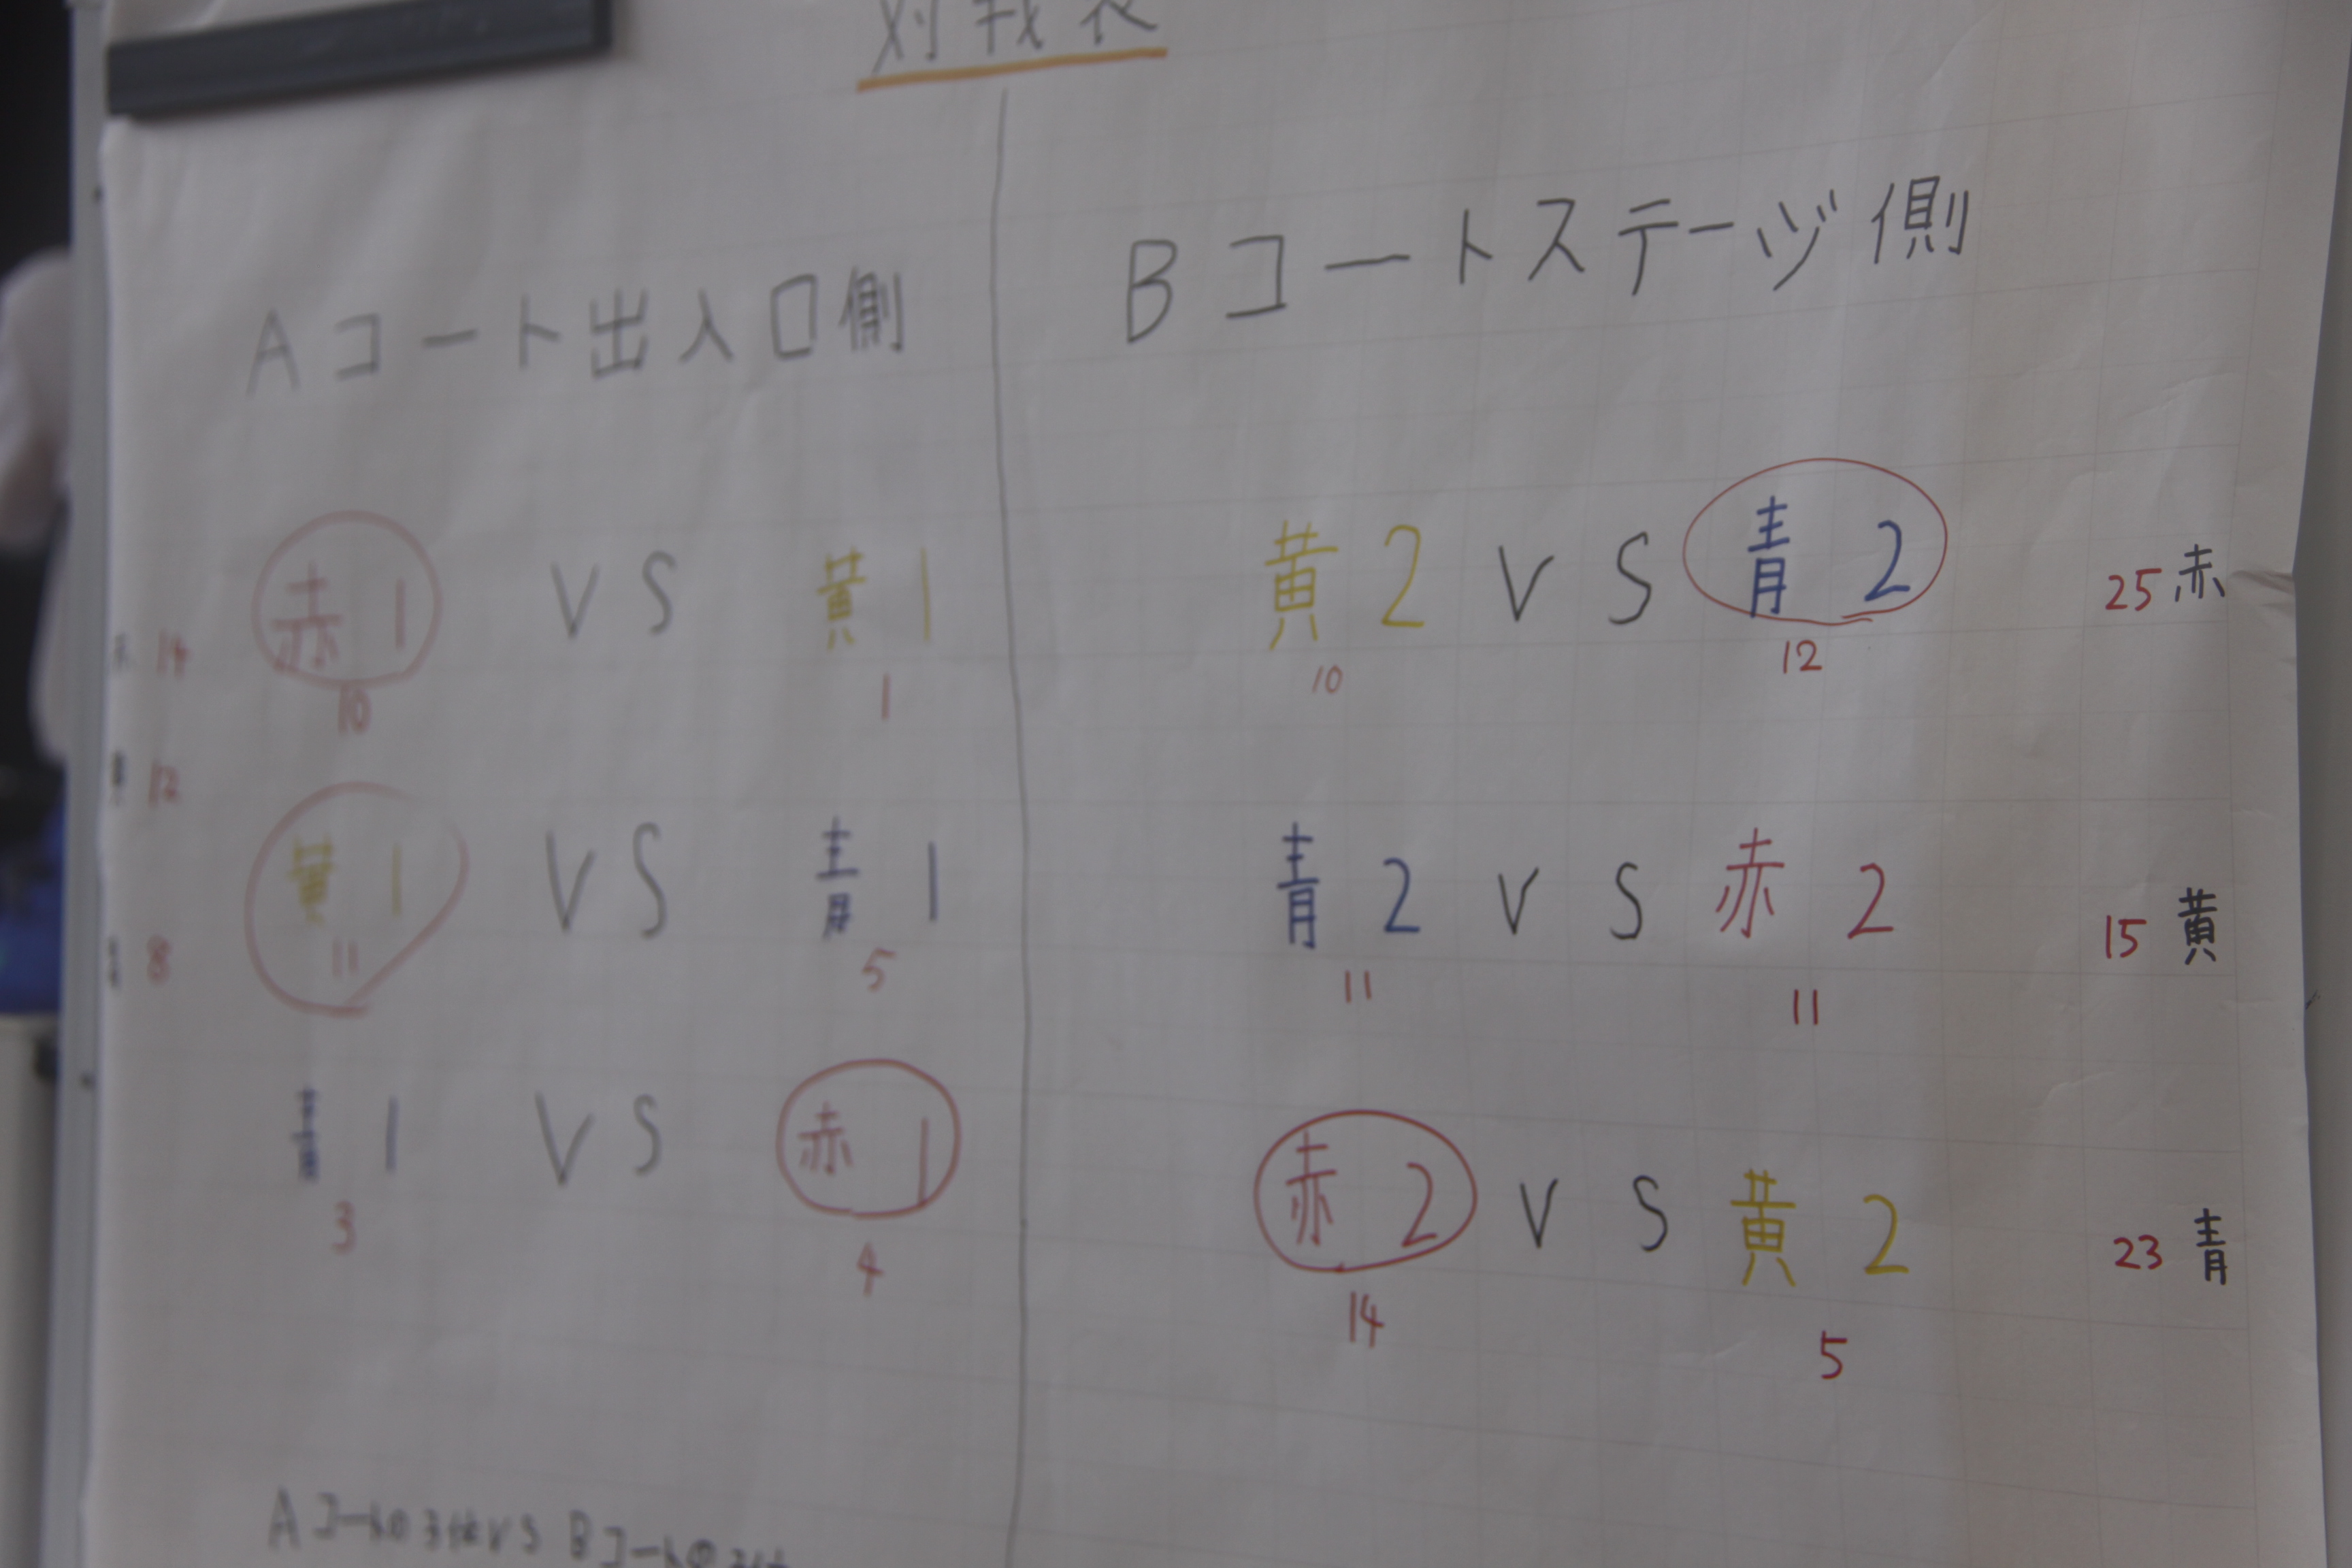 対戦表
Aコート出入口側
赤1 VS 黄1
赤 14
10 1
黄 12
黄1 VS 青1
11 5
青 8
青1 VS 赤1
3 4
Bコートステージ側
黄2 VS 青2
25 赤
10 12
青2 VS 赤2
15 黄
11 11
赤2 VS 黄2
23 青
14 5
Aコートの3位VS Bコートの3位